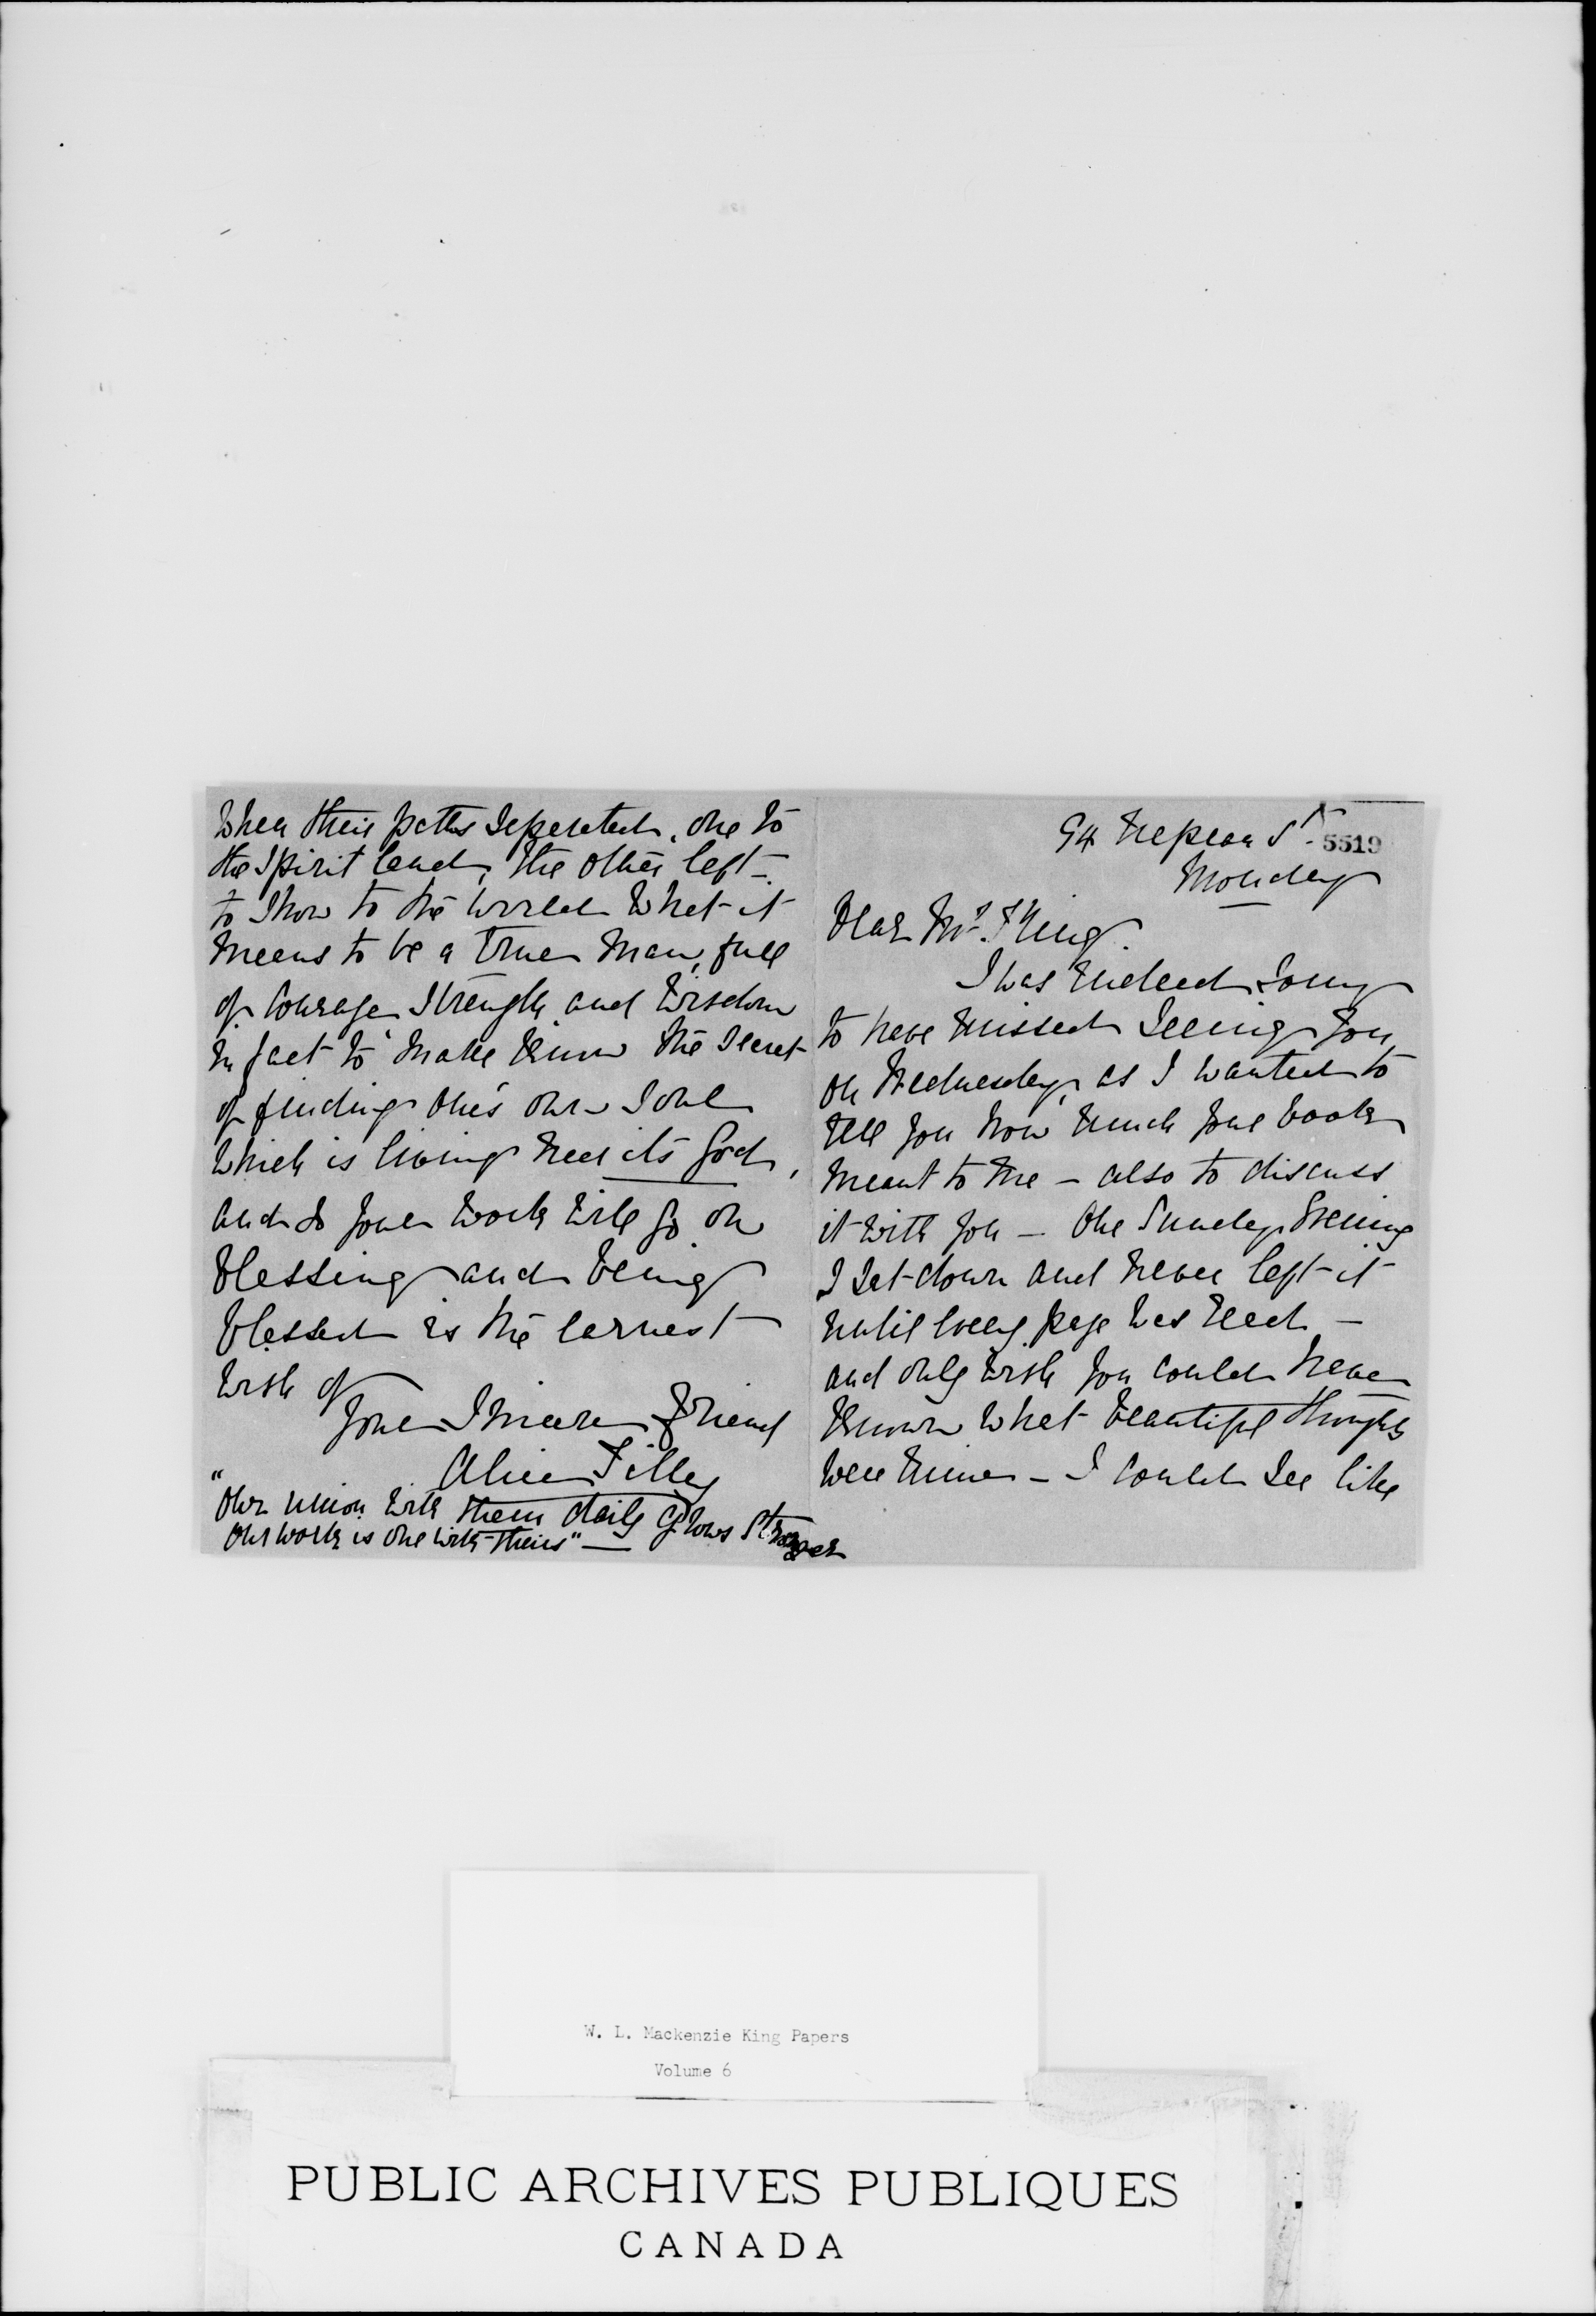 94 Nepean St. 5519
Monday
Dear Mr. King.
I was indeed sorry
to have missed seeing you
on Wednesday, as I wanted to
tell you how much your book
meant to me – also to discuss
it with you – One Sunday Evening
I sat down and never left it
until every page was read –
and only wish you could have
known what beautiful thoughts
were mine – I could see like
when their paths seperated, one to
the spirit land, the other left –
to show to the world what it
means to be a true man, full
of courage strength and wisdom
in fact to make known the secret
of finding one's own soul
which is living near its God,
and so your work will go on
blessing and being
blessed is the earnest
wish of
your sincere friend
Alice Tilley
"Our union with them daily grows stronger
Our work is one with theirs" –
W. L. Mackenzie King Papers
Volume 6
PUBLIC ARCHIVES PUBLIQUES
CANADA